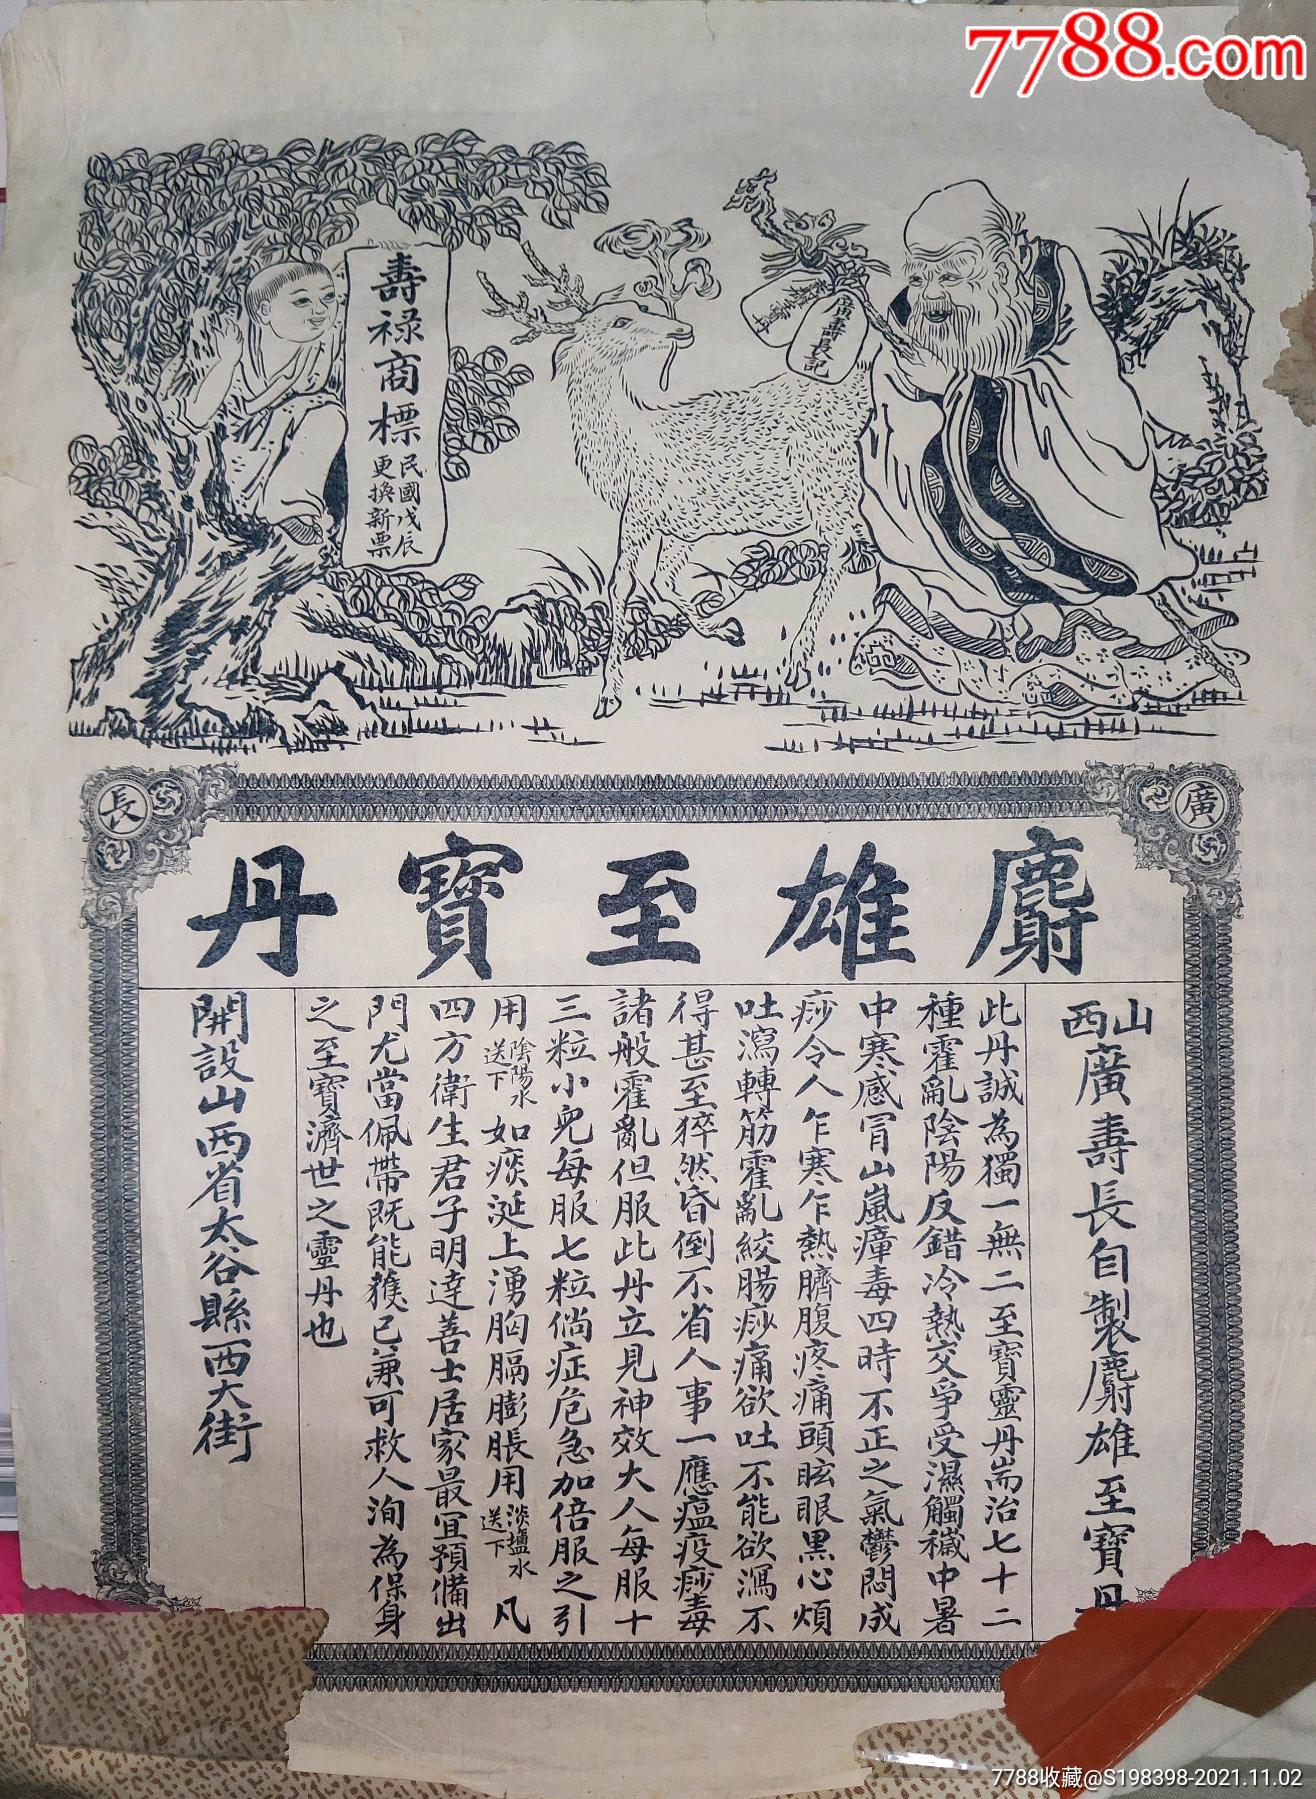 7788.com
壽祿商標
民國戊辰
更換新票
廣壽長記
廣
長
麝雄至寶丹
山西廣壽長自製麝雄至寶丹
此丹誠為獨一無二至寶靈丹耑治七十二
種霍亂陰陽反錯冷熱交爭受濕觸穢中暑
中寒感冒山嵐瘴毒四時不正之氣鬱悶成
痧令人乍寒乍熱臍腹疼痛頭眩眼黑心煩
吐瀉轉筋霍亂絞腸痧痛欲吐不能欲瀉不
得甚至猝然昏倒不省人事一應瘟疫痧毒
諸般霍亂但服此丹立見神效大人每服十
三粒小兒每服七粒倘症危急加倍服之引
用陰陽水送下如痰涎上湧胸膈膨脹用淡鹽水送下凡
四方衛生君子明達善士居家最宜預備出
門尤當佩帶既能獲己兼可救人洵為保身
之至寶濟世之靈丹也
開設山西省太谷縣西大街
7788收藏@S198398-2021.11.02